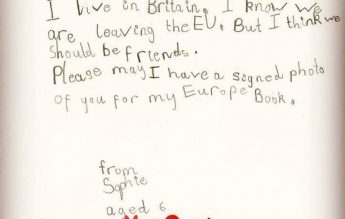 I live in Britain. I know we
are leaving the EU. But I think we
should be friends.
Please may I have a signed photo
of you for my Europe Book.
from
Sophie
aged 6